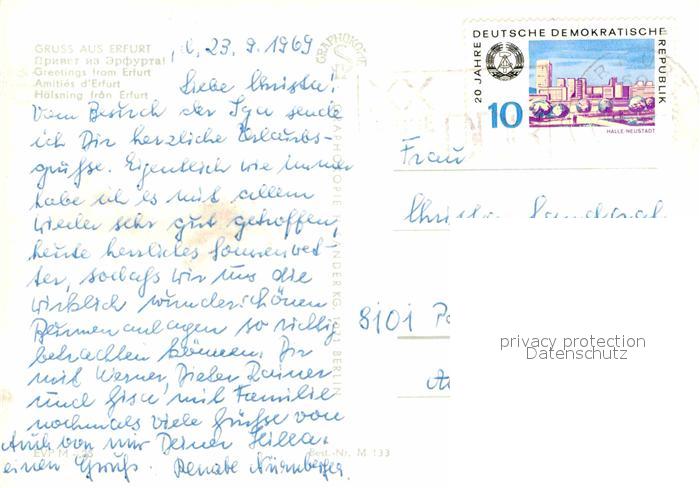 GRUSS AUS ERFURT
Привет из Эрфурта!
Greetings from Erfurt
Amitiés d'Erfurt
Hälsning från Erfurt
d. 23. 9. 1969
Liebe Christa!
Vom Besuch der Iga sende
ich Dir herzliche Urlaubs-
grüße. Eigentlich wie immer
habe ich es mit allem
wieder sehr gut getroffen,
heute herrliches Sonnenwet-
ter, sodaß wir uns die
wirklich wunderschönen
Blumenanlagen so richtig
betrachten können. Dir
mit Werner, Dieter, Rainer
und Gisa mit Familie
nochmals viele Grüße von
Auch von mir Deiner Hilla.
einen Gruß. Renate Nürnberger
EVP M
Best.-Nr. M 133
GRAPHOKOPIE
1071 BERLIN
20 JAHRE DEUTSCHE DEMOKRATISCHE REPUBLIK
10
HALLE-NEUSTADT
Frau
Christa
8101
privacy protection
Datenschutz